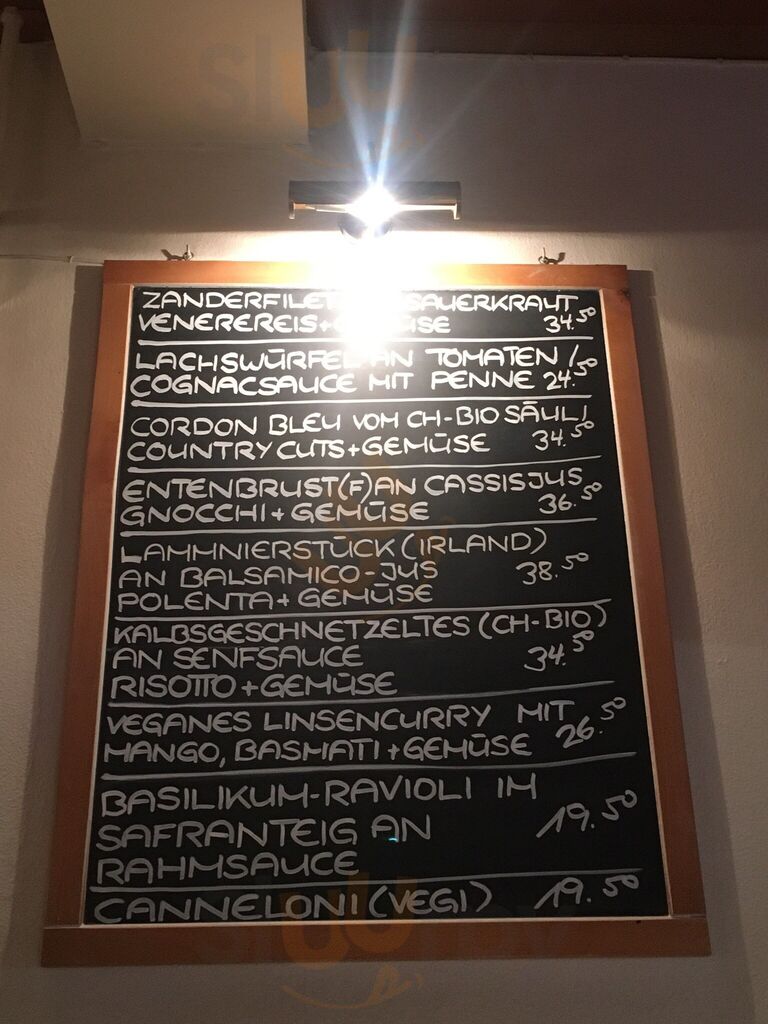 ZANDERFILET SAUERKRAUT
VENEREREIS+GEMÜSE 34.50
LACHSWÜRFEL AN TOMATEN/
COGNACSAUCE MIT PENNE 24.50
CORDON BLEU VOM CH-BIO SÄULI
COUNTRY CUTS+GEMÜSE 34.50
ENTENBRUST(F)AN CASSISJUS
GNOCCHI+GEMÜSE 36.50
LAMMNIERSTÜCK(IRLAND)
AN BALSAMICO-JUS 38.50
POLENTA+GEMÜSE
KALBSGESCHNETZELTES (CH-BIO)
AN SENFSAUCE 34.50
RISOTTO+GEMÜSE
VEGANES LINSENCURRY MIT
MANGO, BASMATI+GEMÜSE 26.50
BASILIKUM-RAVIOLI IM
SAFRANTEIG AN 19.50
RAHMSAUCE
CANNELONI(VEGI) 19.50